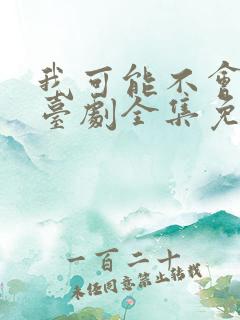 我可能不會
臺劇全集免
一百二十
未经同意禁止转载